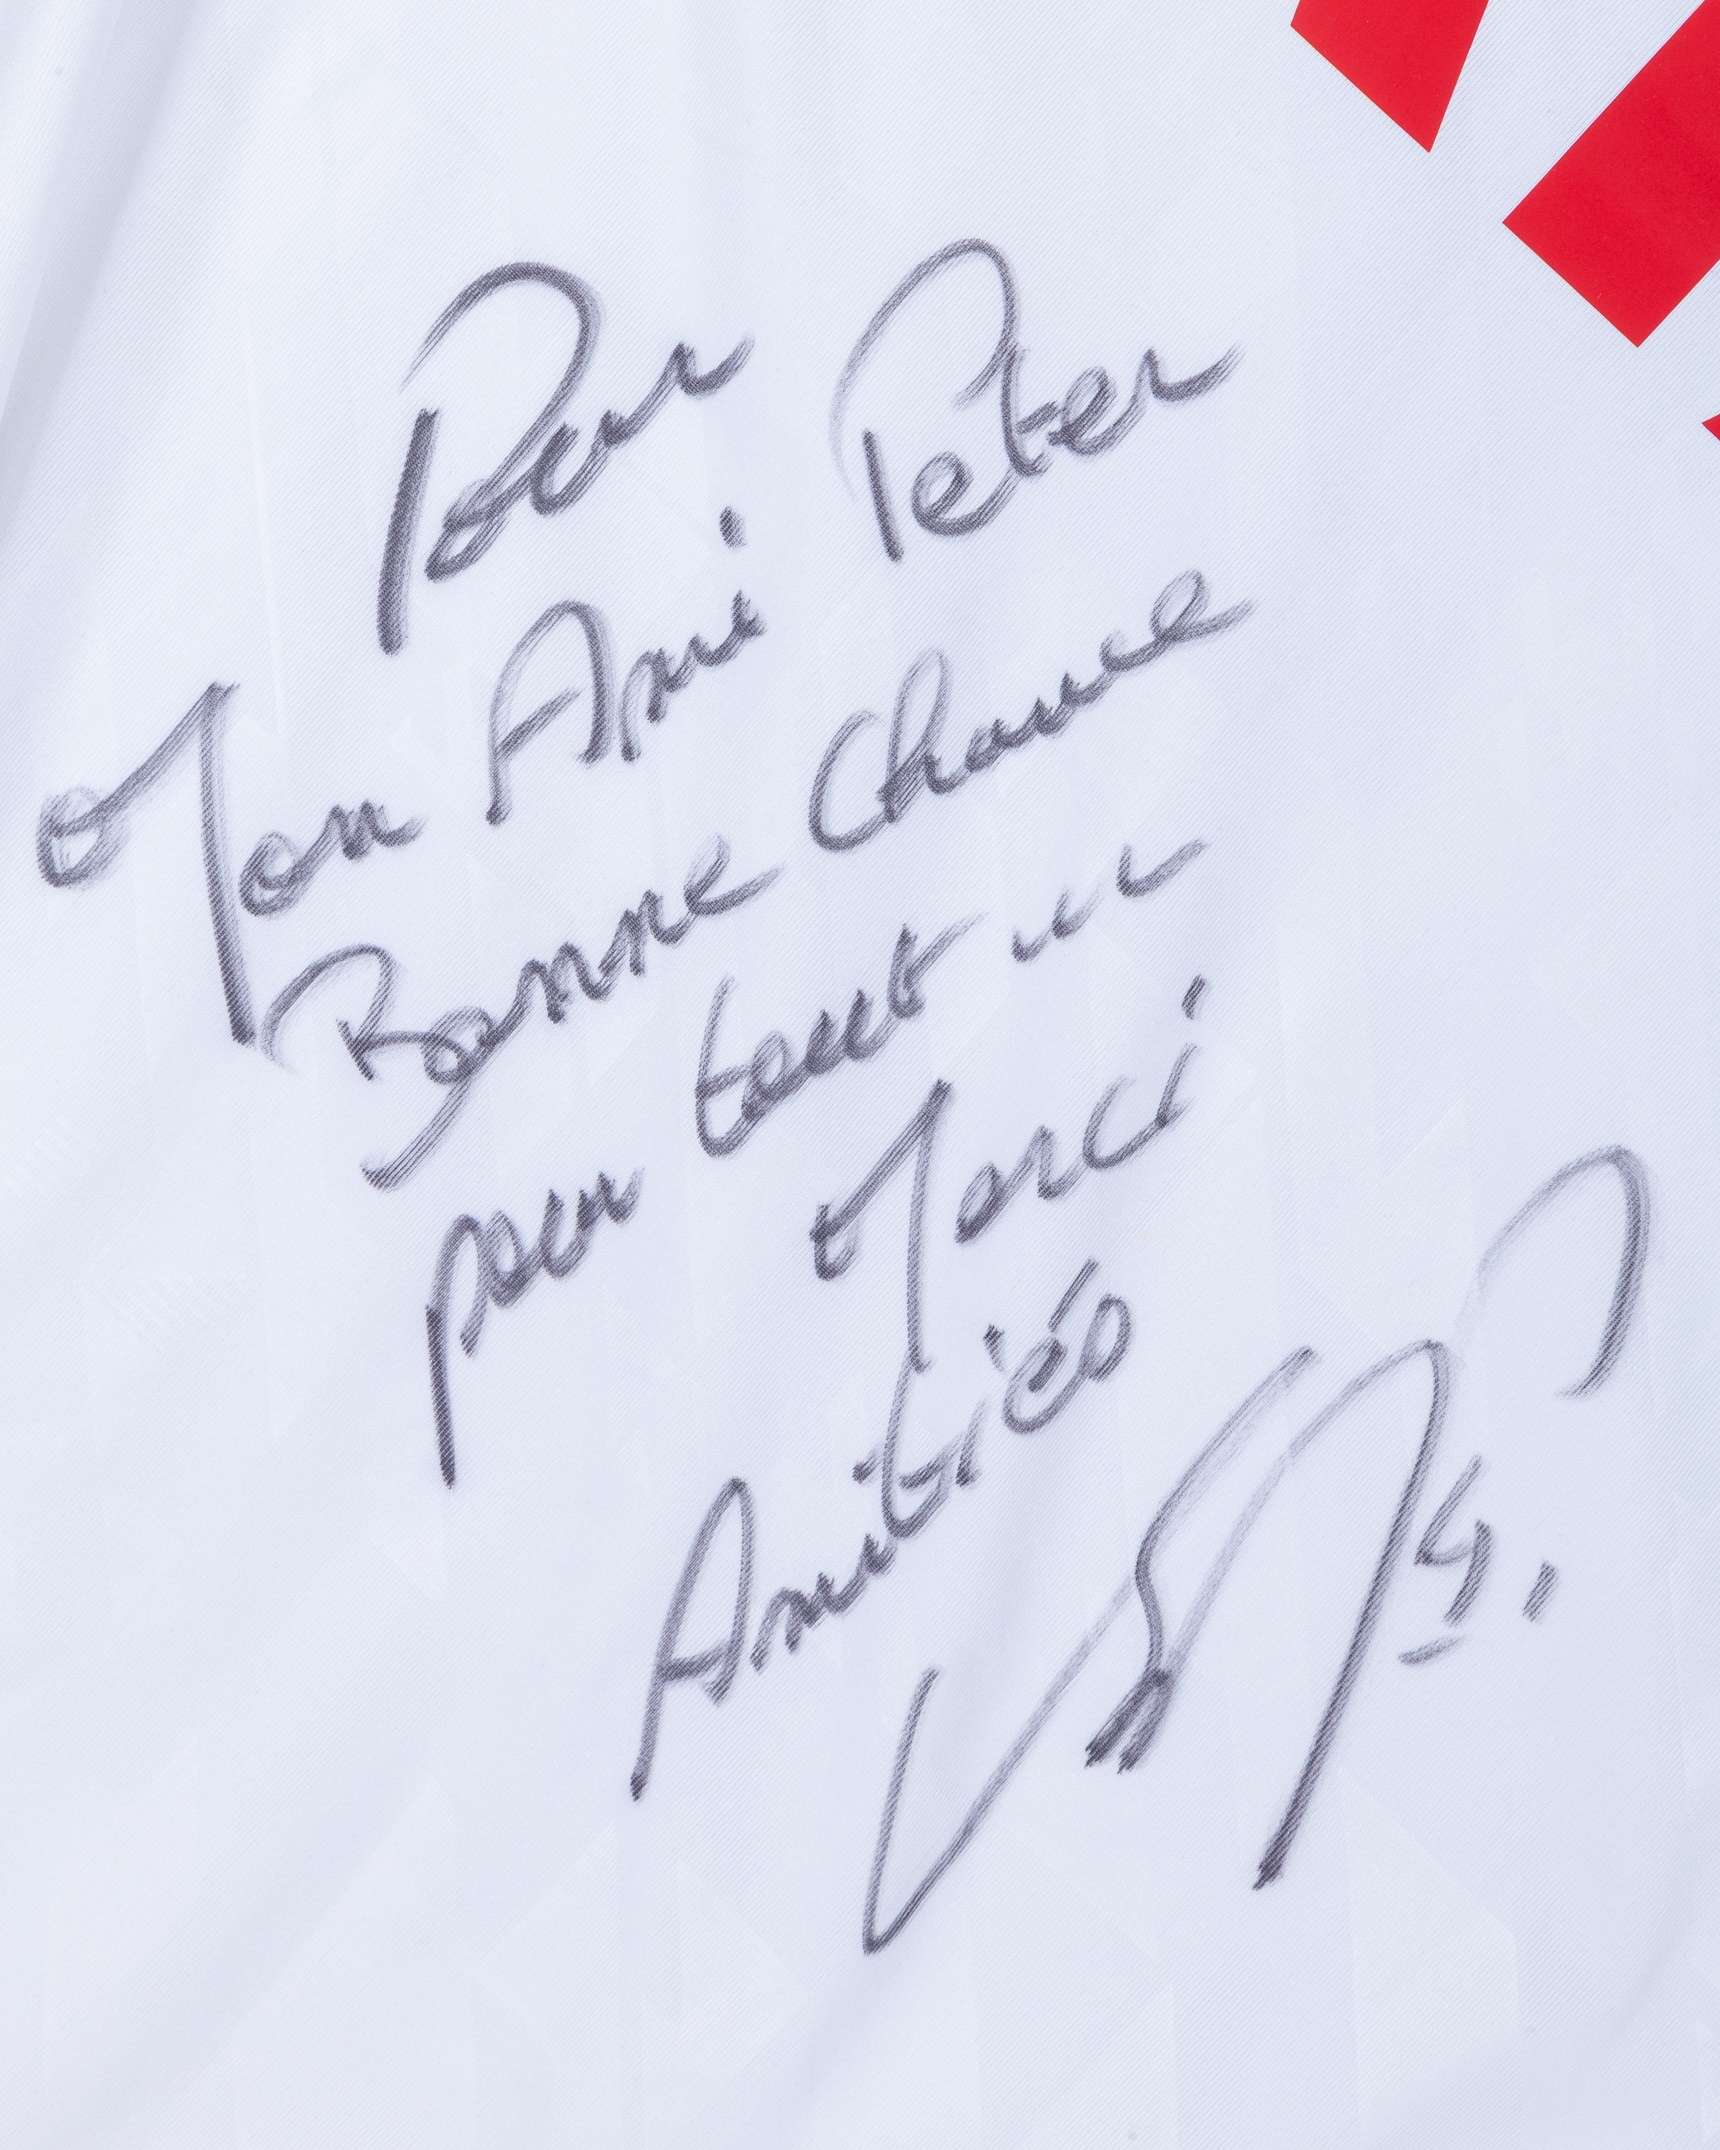 Pour
Mon Ami Peter
Bonne Chance
pour tout
Merci
Amitiés